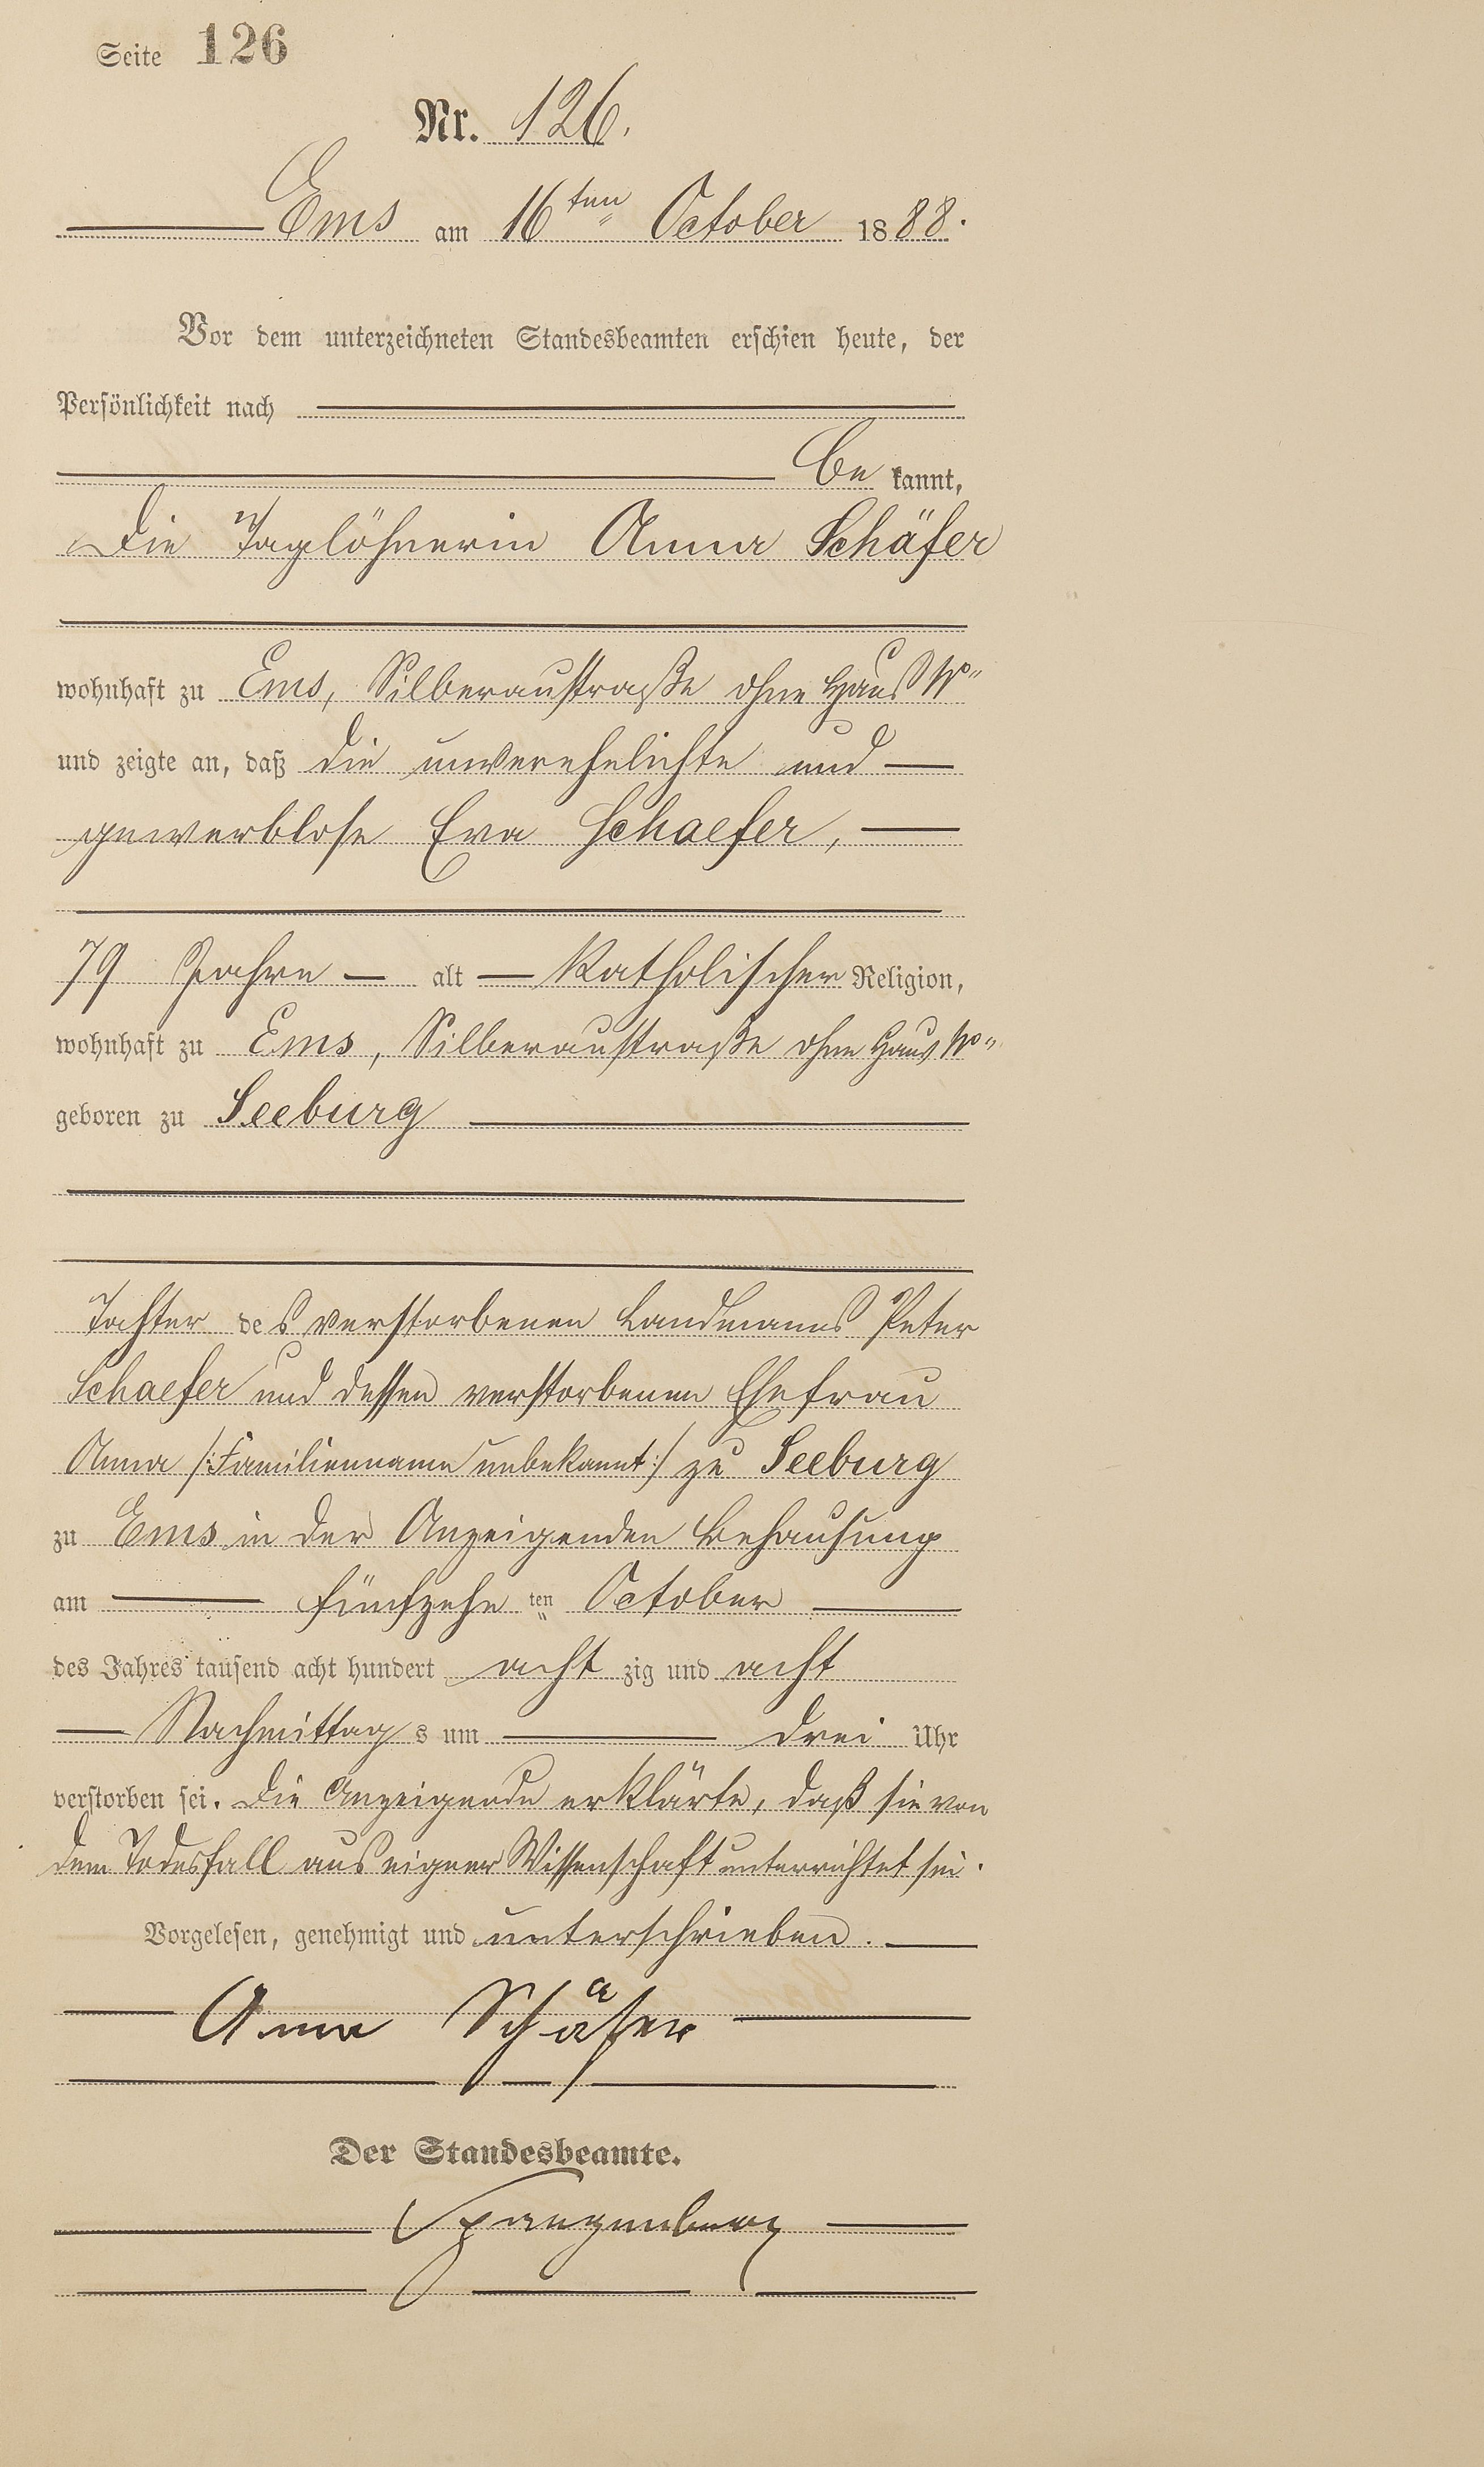 Seite 126
Nr. 126.
Ems am 16ten October 1888.
Vor dem unterzeichneten Standesbeamten erschien heute, der
Persönlichkeit nach
be kannt,
die Taglöhnerin Anna Schäfer
wohnhaft zu Ems, Silberaustraße ohne Haus No
und zeigte an, daß die unverehelichte und
gewerblose Eva Schaefer,
79 Jahre alt Katholischer Religion,
wohnhaft zu Ems, Silberaustraße ohne Haus No
geboren zu Seeburg
Tochter des verstorbenen Landmanns Peter
Schaefer und dessen verstorbenen Ehefrau
Anna /:Familienname unbekannt:/ zu Seeburg
zu Ems in der Anzeigenden Behausung
am fünfzehn ten October
des Jahres tausend acht hundert acht zig und acht
Nachmittag s um drei Uhr
verstorben sei. Die Anzeigende erklärte, daß sie von
dem Todesfall aus eigner Wissenschaft unterrichtet sei.
Vorgelesen, genehmigt und unterschrieben.
Anna Schäfer
Der Standesbeamte.
Spangenberg